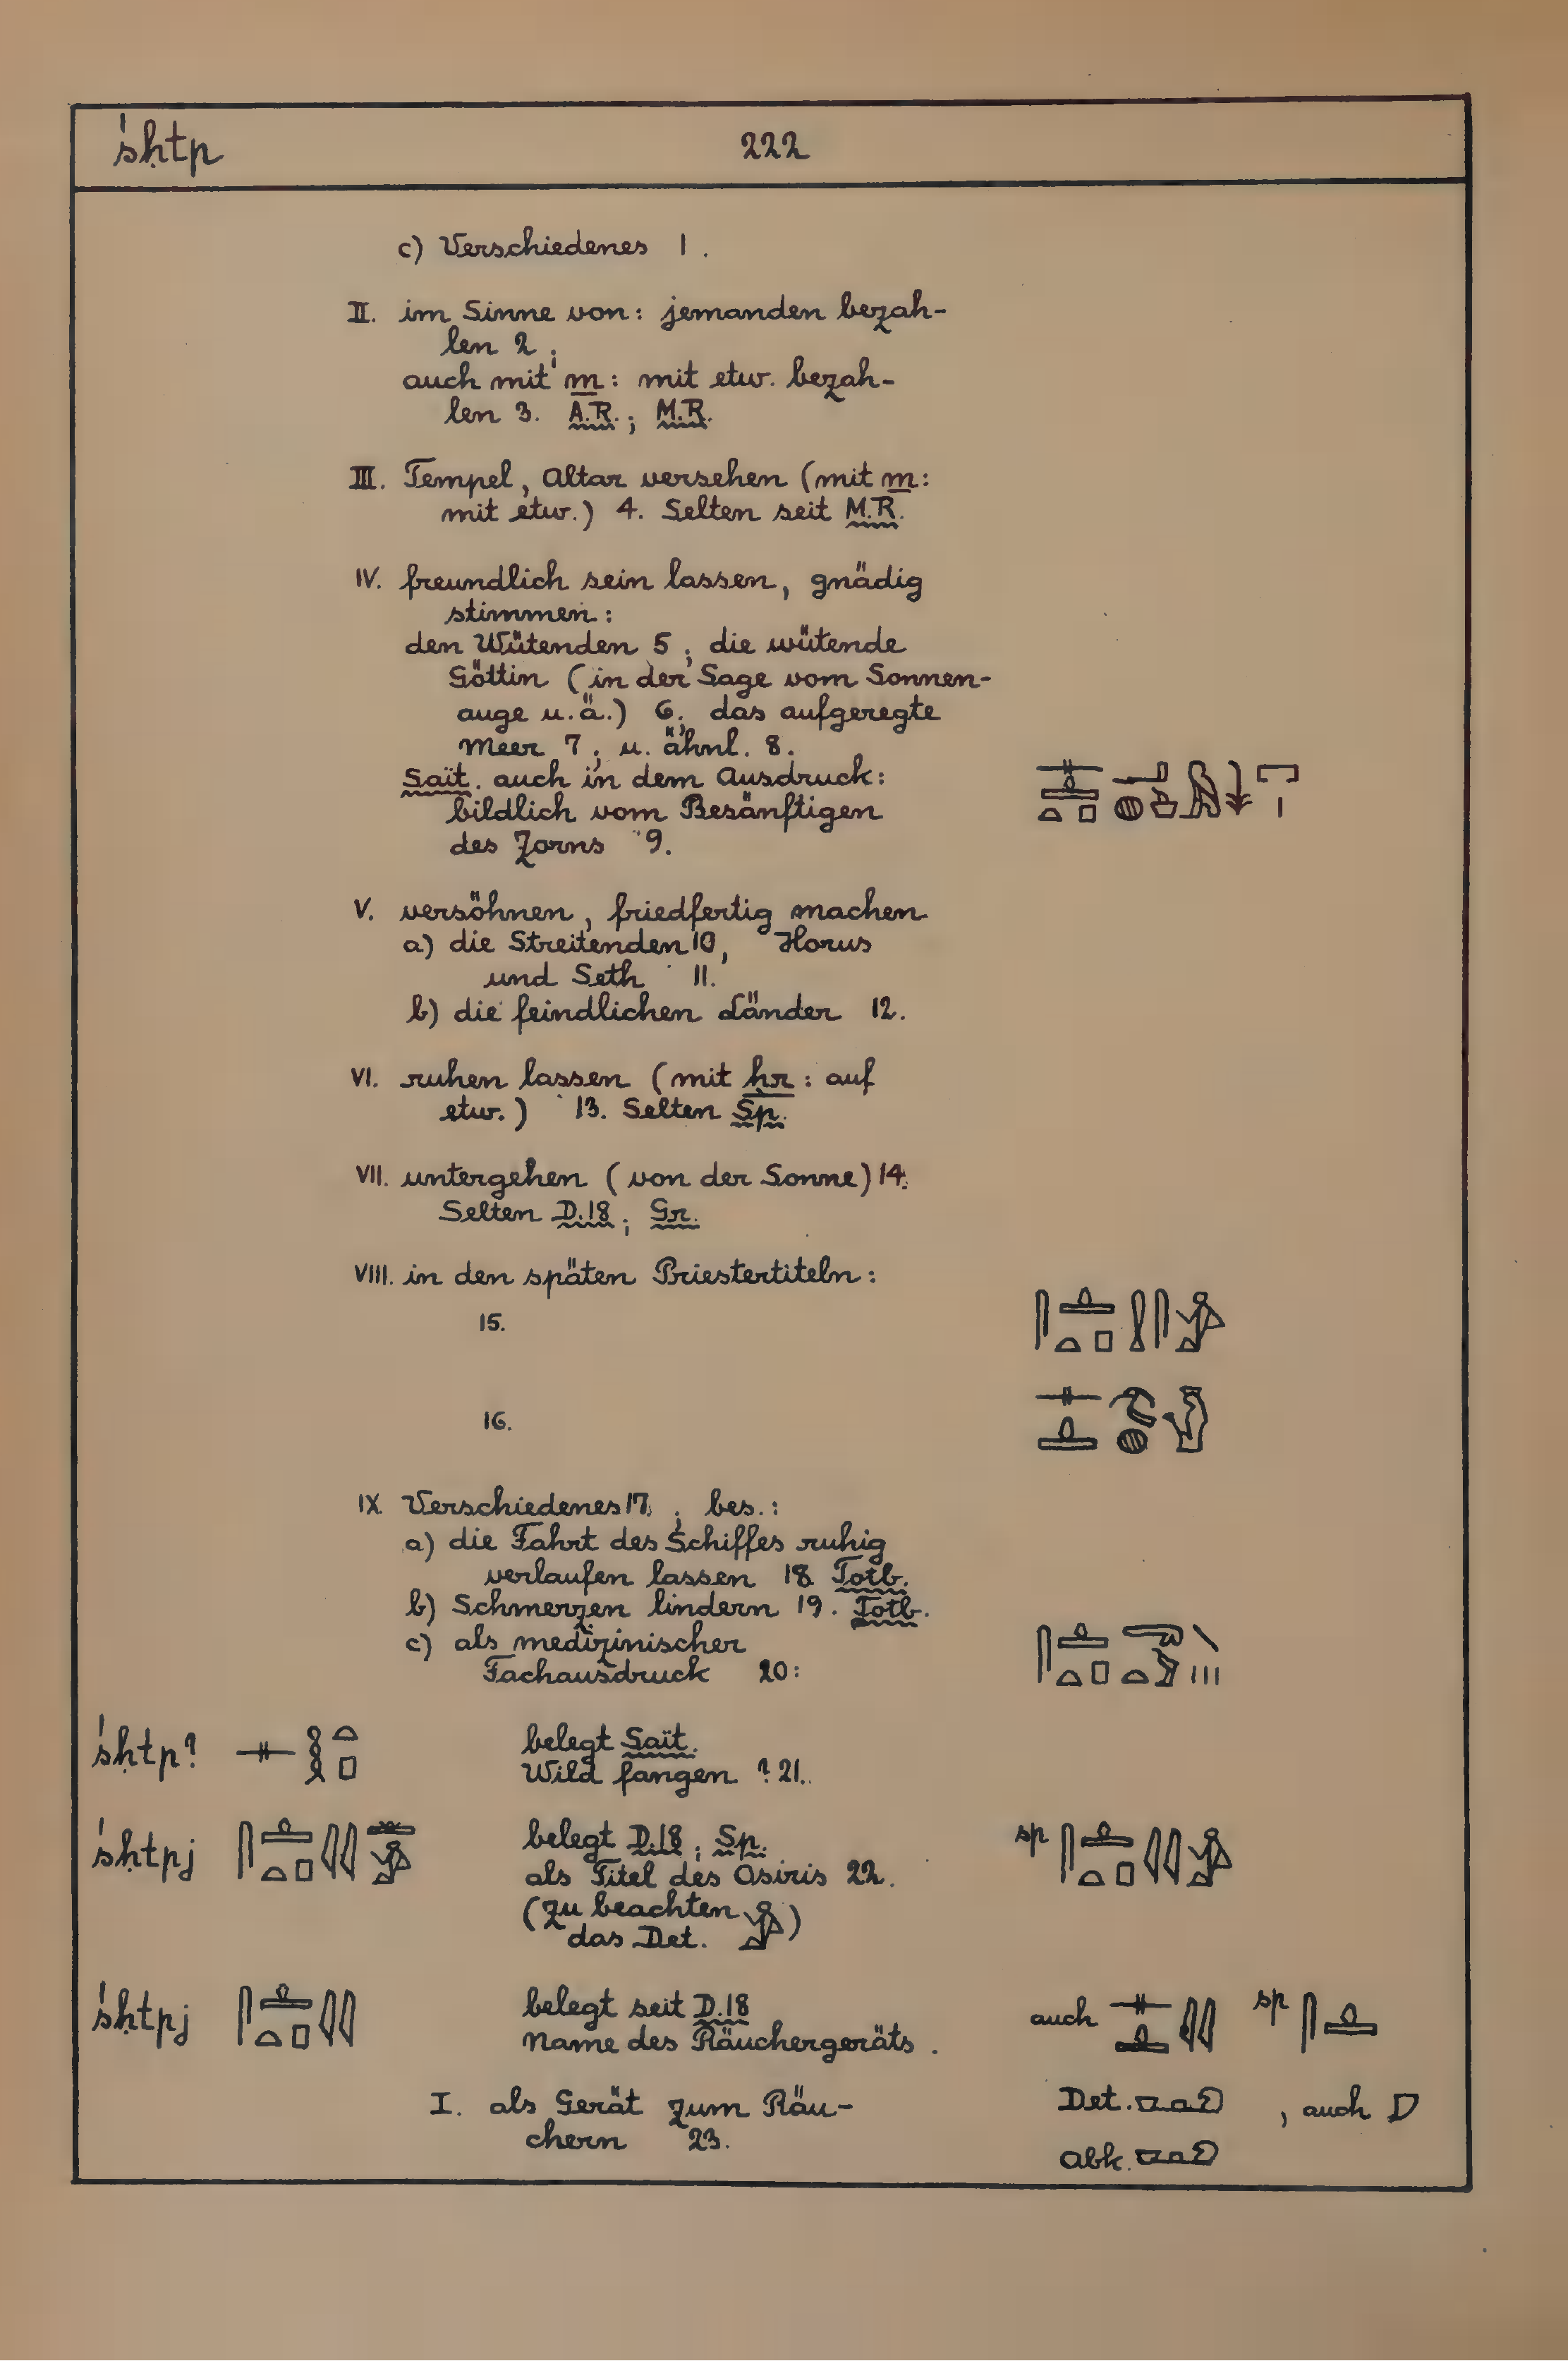 śḥtp 222
c) Verschiedenes 1.
II. im Sinne von: jemanden bezah-
len 2;
auch mit m: mit etw. bezah-
len 3. A.R.; M.R.
III. Tempel, Altar versehen (mit m:
mit etw.) 4. Selten seit M.R.
IV. freundlich sein lassen, gnädig
stimmen:
den Wütenden 5; die wütende
Göttin (in der Sage vom Sonnen-
auge u.ä.) 6; das aufgeregte
Meer 7; u. ähnl. 8.
Saït. auch in dem Ausdruck:
bildlich vom Besänftigen
des Zorns 9.
V. versöhnen, friedfertig machen
a) die Streitenden 10, Horus
und Seth 11.
b) die feindlichen Länder 12.
VI. ruhen lassen (mit ḥr: auf
etw.) 13. Selten Sp.
VII. untergehen (von der Sonne) 14.
Selten D.18; Gr.
VIII. in den späten Priestertiteln:
15.
16.
IX. Verschiedenes 17; bes.:
a) die Fahrt des Schiffes ruhig
verlaufen lassen 18 Totb.
b) Schmerzen lindern 19. Totb.
c) als medizinischer
Fachausdruck 20:
śḥtp? belegt Saït.
Wild fangen ? 21.
śḥtpj belegt D.18; Sp. sp
als Titel des Osiris 22.
(zu beachten
das Det. )
śḥtpj belegt seit D.18 auch sp
Name des Räuchergeräts.
I. als Gerät zum Räu- Det. , auch
chern 23. Abk.